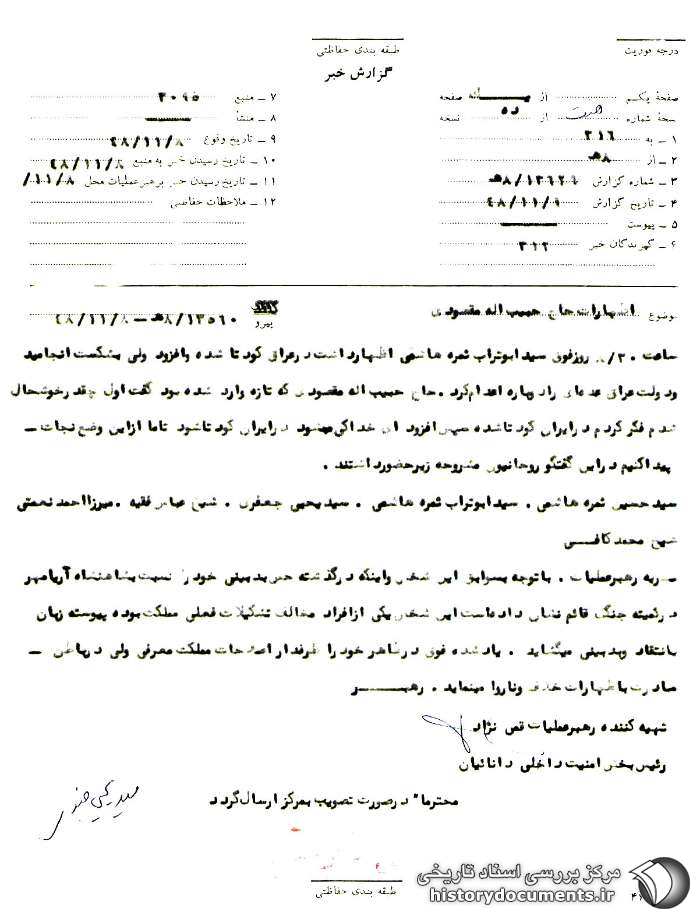 درجه فوریت
طبقه بندی حفاظتی
گزارش خبر
صفحهٔ یکم از یکــــانه صفحه
نسخهٔ شماره هشت از ده نسخه
۱ ـ به ۳۱۶
۲ ـ از ۸هـ
۳ ـ شماره گزارش ۸/۱۳۶۲۹هـ
۴ ـ تاریخ گزارش ۴۸/۱۱/۹
۵ ـ پیوست
۶ ـ گیرندگان خبر ۳۱۲
۷ ـ منبع ۳۰۹۵
۸ ـ منشأ
۹ ـ تاریخ وقوع ۴۸/۱۱/۸
۱۰ ـ تاریخ رسیدن خبر به منبع ۴۸/۱۱/۸
۱۱ ـ تاریخ رسیدن خبر برهبر عملیات محل /۱۱/۸
۱۲ ـ ملاحظات حفاظتی
موضوع اظهارات حاج حبیب اله مقصودی
پیرو ۸/۱۳۵۶۰هـ ـ ۴۸/۱۱/۸
ساعت ۸/۳۰ روز فوق سید ابوتراب ثمره هاشمی اظهار داشت در عراق کودتا شده وافزود ولی بشکست انجامید
ودولت عراق عده‌ای را دوباره اعدام کرد . حاج حبیب اله مقصودی که تازه وارد شده بود گفت اول چقدر خوشحال
شدم فکر کردم در ایران کودتا شده سپس افزود ای خدا کی میشود در ایران کودتا شود تا ما از این وضع نجات ـ
پیدا کنیم در این گفتگو روحانیون مشروحه زیر حضور داشتند .
سید حسین ثمره هاشمی . سید ابوتراب ثمره هاشمی . سید یحیی جعفری . شیخ عباس فقیه . میرزا احمد نعمتی
شیخ محمد کافــی
نظریه رهبر عملیات . با توجه بسوابق این شخص واینکه در گذشته حس بدبینی خود را نسبت بشاهنشاه آریامهر
در زمینه جنگ قائم نشان داده‌است این شخص یکی از افراد مخالف تشکیلات فعلی مملکت بوده پیوسته زبان
بانتقاد وبدبینی میگشاید . یاد شده فوق در ظاهر خود را طرفدار اصلاحات مملکت معرفی ولی در باطن ـ
مبادرت باظهارات خلاف وناروا مینماید . رهبـــــر
تهیه کننده رهبر عملیات قص نژاد
رئیس بخش امنیت داخلی دانائیان
محترماً در صورت تصویب بمرکز ارسال گردد
سید یحیی جعفری
طبقه بندی حفاظتی
مرکز بررسی اسناد تاریخی
historydocuments.ir